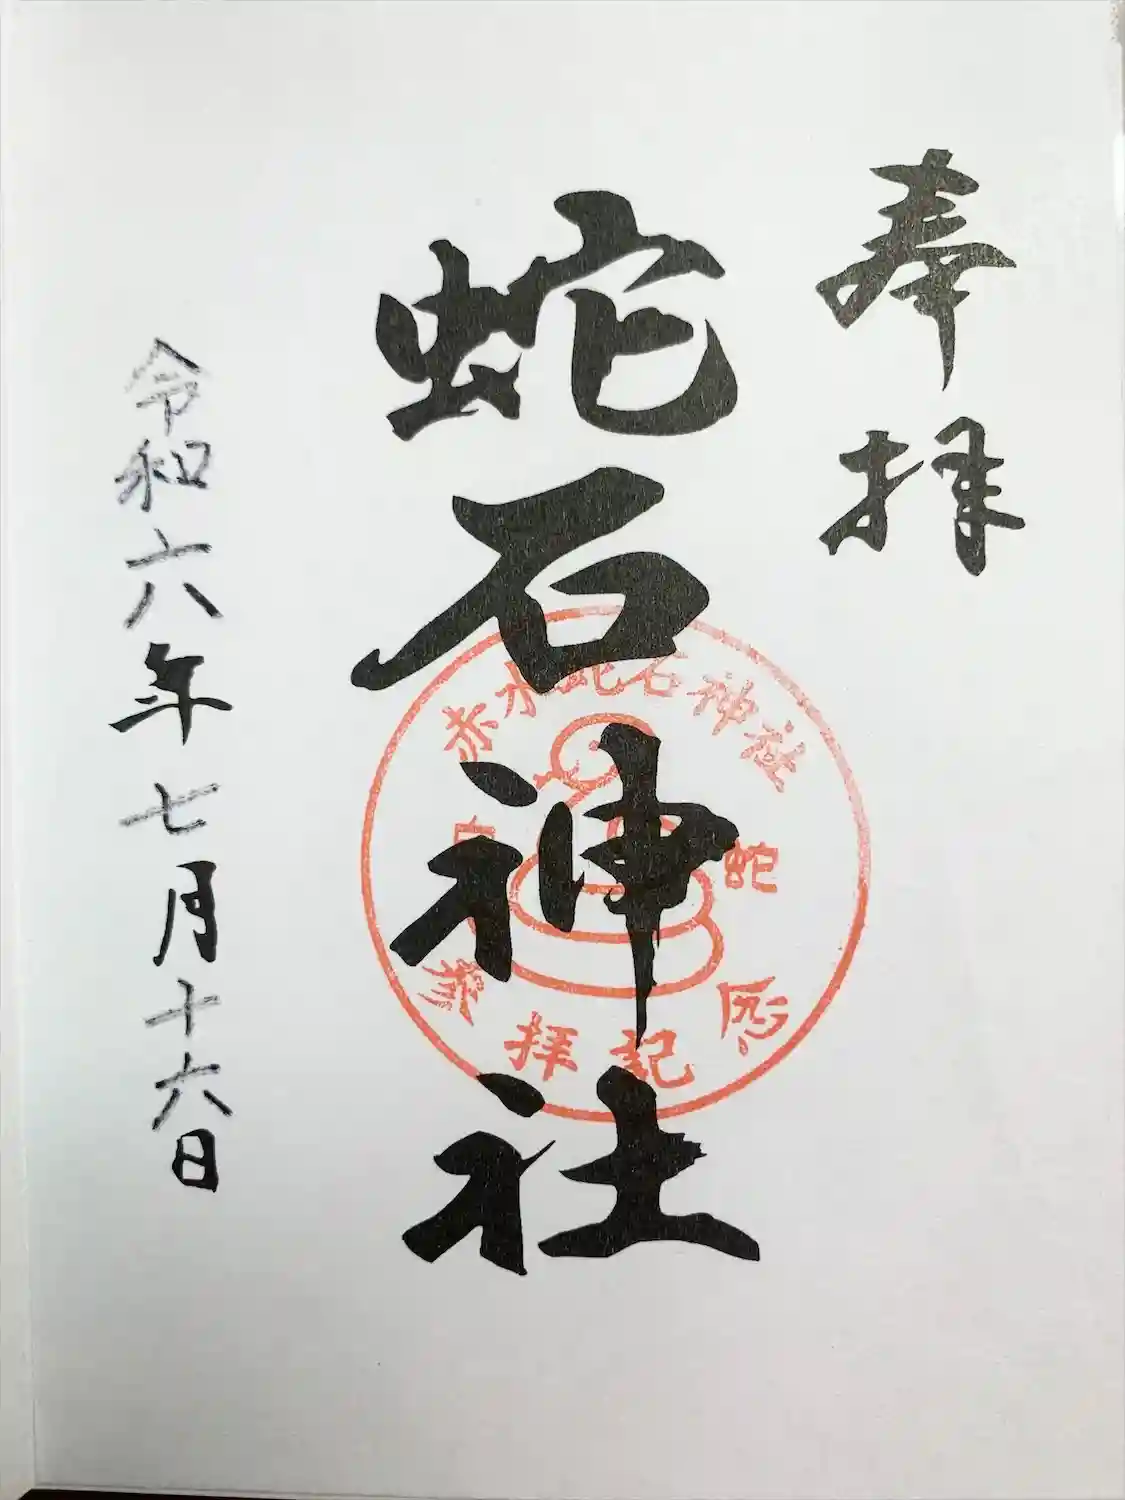 奉拝
蛇石神社
赤水蛇石神社
白蛇
参拝記念
令和六年七月十六日